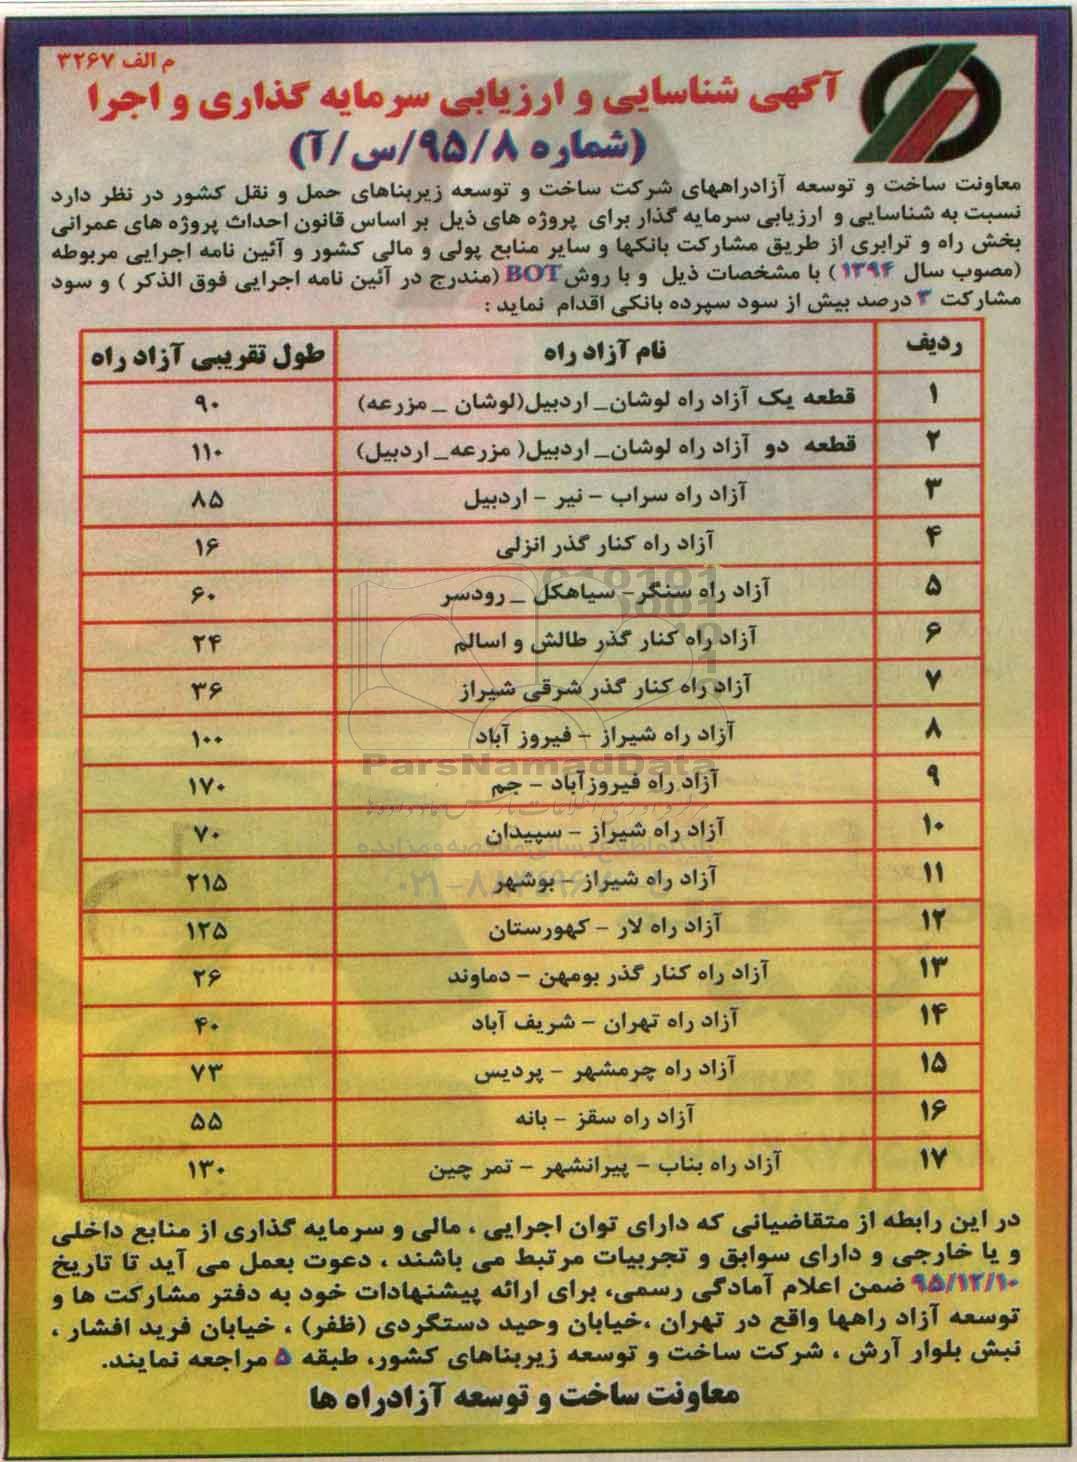 م الف ۳۲۶۷
آگهی شناسایی و ارزیابی سرمایه گذاری و اجرا
(شماره ۹۵/۸/س/آ)
معاونت ساخت و توسعه آزادراههای شرکت ساخت و توسعه زیربناهای حمل و نقل کشور در نظر دارد
نسبت به شناسایی و ارزیابی سرمایه گذار برای پروژه های ذیل بر اساس قانون احداث پروژه های عمرانی
بخش راه و ترابری از طریق مشارکت بانکها و سایر منابع پولی و مالی کشور و آئین نامه اجرایی مربوطه
(مصوب سال ۱۳۹۴) با مشخصات ذیل و با روش BOT (مندرج در آئین نامه اجرایی فوق الذکر) و سود
مشارکت ۳ درصد بیش از سود سپرده بانکی اقدام نماید :
ردیف نام آزاد راه طول تقریبی آزاد راه
۱ قطعه یک آزاد راه لوشان_ اردبیل(لوشان _ مزرعه) ۹۰
۲ قطعه دو آزاد راه لوشان_ اردبیل( مزرعه_ اردبیل) ۱۱۰
۳ آزاد راه سراب - نیر - اردبیل ۸۵
۴ آزاد راه کنار گذر انزلی ۱۶
۵ آزاد راه سنگر- سیاهکل _ رودسر ۶۰
۶ آزاد راه کنار گذر طالش و اسالم ۲۴
۷ آزاد راه کنار گذر شرقی شیراز ۳۶
۸ آزاد راه شیراز - فیروز آباد ۱۰۰
ParsNamadData
۹ آزاد راه فیروزآباد - جم ۱۷۰
۱۰ آزاد راه شیراز - سپیدان ۷۰
۱۱ آزاد راه شیراز - بوشهر ۲۱۵
۱۲ آزاد راه لار - کهورستان ۱۲۵
۱۳ آزاد راه کنار گذر بومهن - دماوند ۲۶
۱۴ آزاد راه تهران - شریف آباد ۴۰
۱۵ آزاد راه چرمشهر - پردیس ۷۳
۱۶ آزاد راه سقز - بانه ۵۵
۱۷ آزاد راه بناب - پیرانشهر - تمر چین ۱۳۰
در این رابطه از متقاضیانی که دارای توان اجرایی ، مالی و سرمایه گذاری از منابع داخلی
و یا خارجی و دارای سوابق و تجربیات مرتبط می باشند ، دعوت بعمل می آید تا تاریخ
۹۵/۱۲/۱۰ ضمن اعلام آمادگی رسمی، برای ارائه پیشنهادات خود به دفتر مشارکت ها و
توسعه آزاد راهها واقع در تهران ،خیابان وحید دستگردی (ظفر) ، خیابان فرید افشار ،
نبش بلوار آرش ، شرکت ساخت و توسعه زیربناهای کشور، طبقه ۵ مراجعه نمایند.
معاونت ساخت و توسعه آزادراه ها